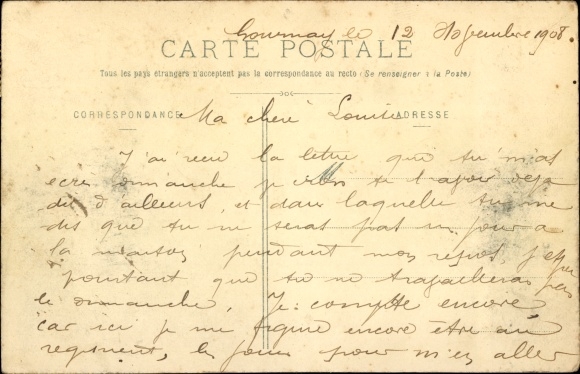 Gournay le 12 Novembre 1908.
CARTE POSTALE
Tous les pays étrangers n'acceptent pas la correspondance au recto (Se renseigner à la Poste)
CORRESPONDANCE
ADRESSE
Ma chère Louise
J'ai reçu la lettre que tu m'as
ecris dimanche je te l'avoir deja
dit d'ailleurs, et dans laquelle tu me
dis que tu ne seras pas un jour a
la maison pendant mon repos, j'espère
pourtant que tu ne travailleras pas
le dimanche. Je compte encore
car ici je me figure encore être au
regiment, les jours pour m'en aller